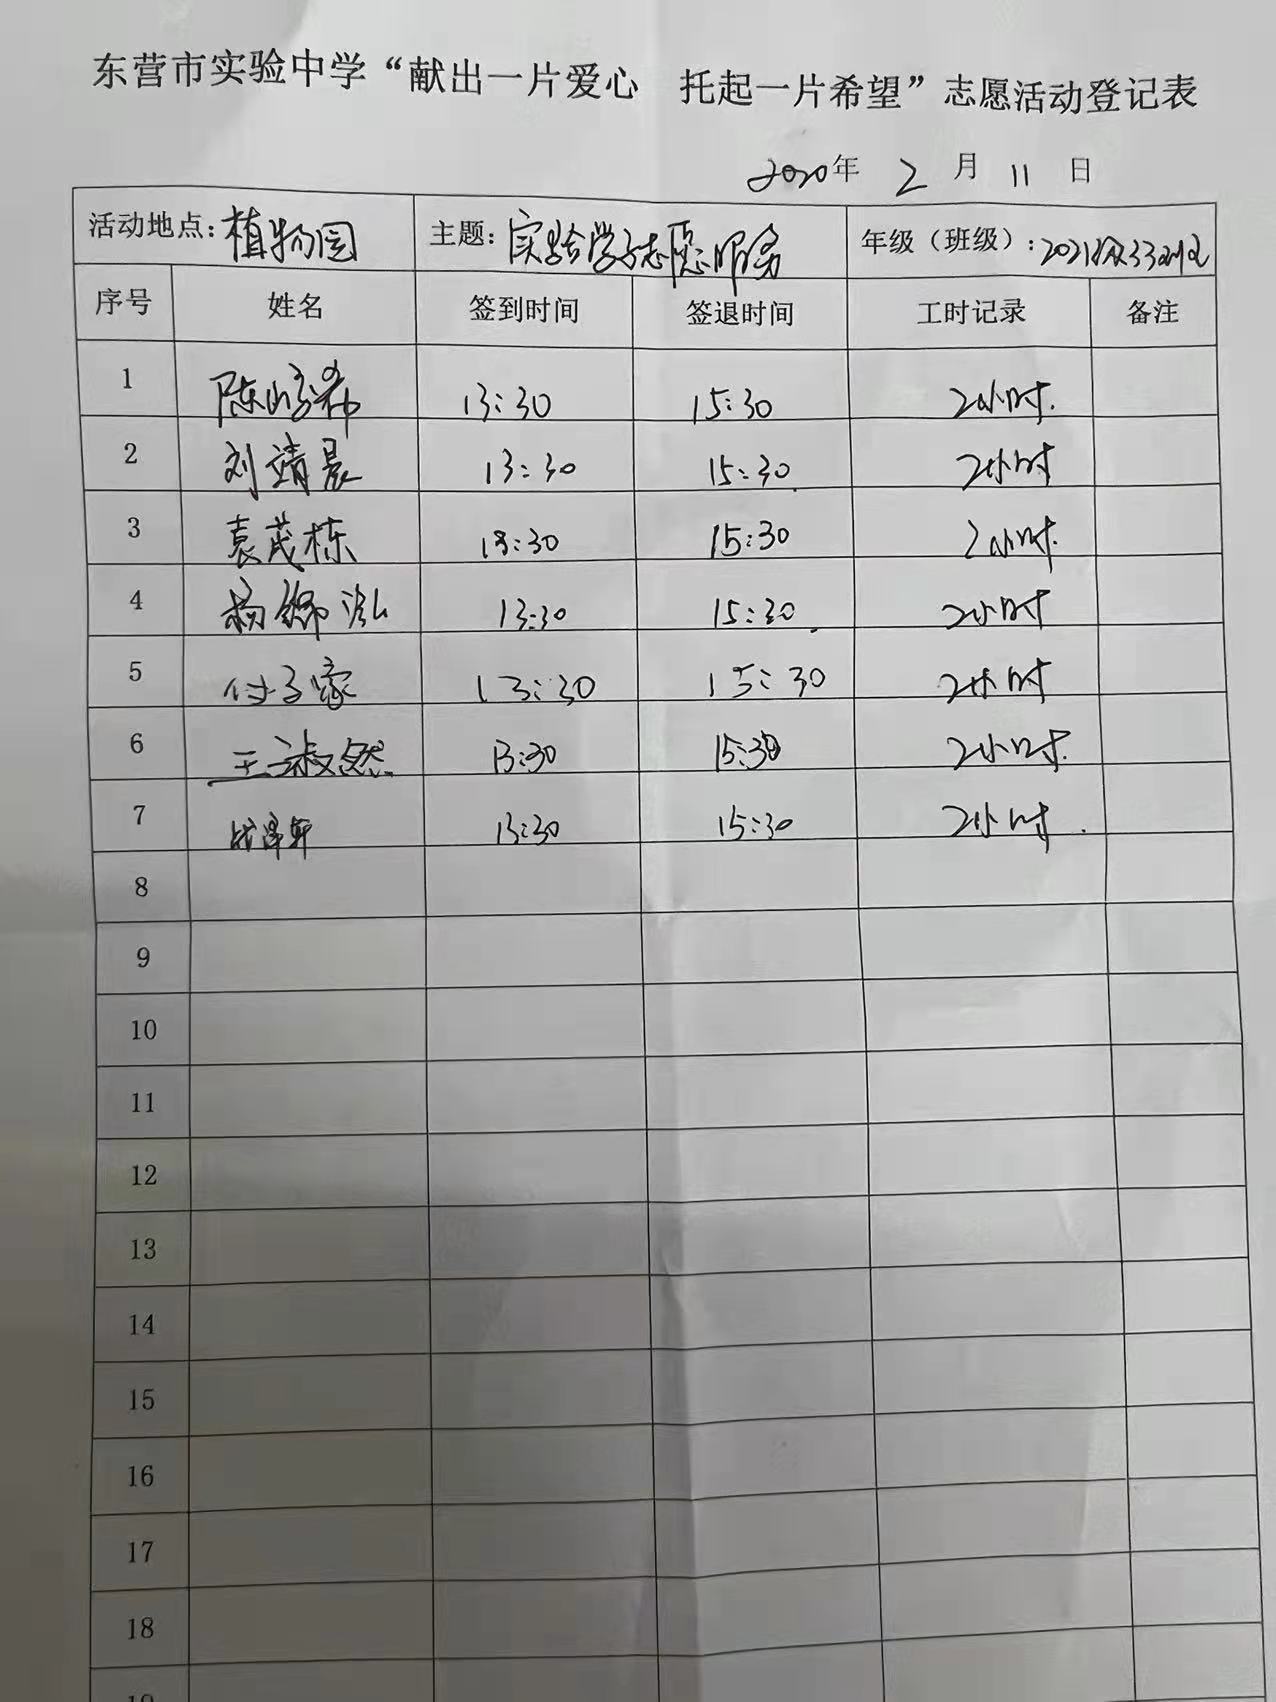 东营市实验中学“献出一片爱心 托起一片希望”志愿活动登记表
2020年 2 月 11 日
活动地点：植物园 主题：实验学子志愿服务 年级（班级）：2021级33班
序号 姓名 签到时间 签退时间 工时记录 备注
1 陈 希 13:30 15:30 2小时.
2 刘靖晨 13:30 15:30 2小时
3 袁茂栋 13:30 15:30 2小时.
4 杨锦泓 13:30 15:30 2小时
5 付子家 13:30 15:30 2小时
6 王淑然 13:30 15:30 2小时.
7 泽轩 13:30 15:30 2小时.
8
9
10
11
12
13
14
15
16
17
18
19